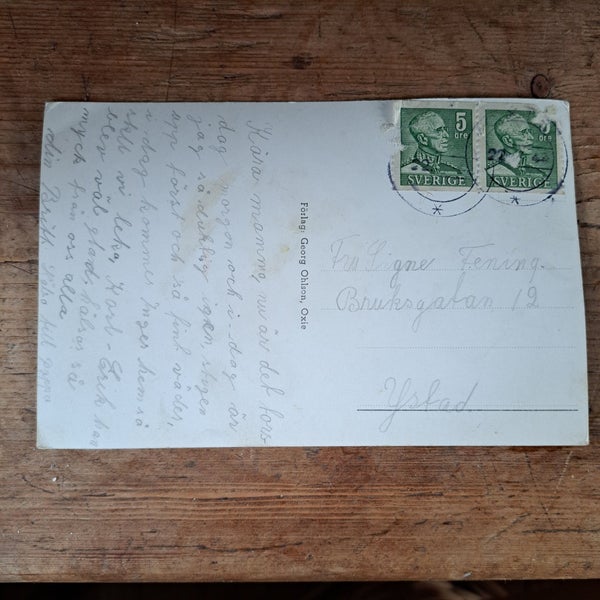 Kära mamma, nu är det tors
dag morgon och i-dag är
jag så duktig igen stigen
upp först och så fint väder,
i dag kommer Inger hem så
skall vi leka, Kort-Erik har
blev väl glad, hälsas så
mycket från oss alla
din Britt
pappa
Förlag: Georg Ohlson, Oxie
5
öre
SVERIGE
öre
SVERIGE
Fru Signe Fening.
Bruksgatan 12
Ystad